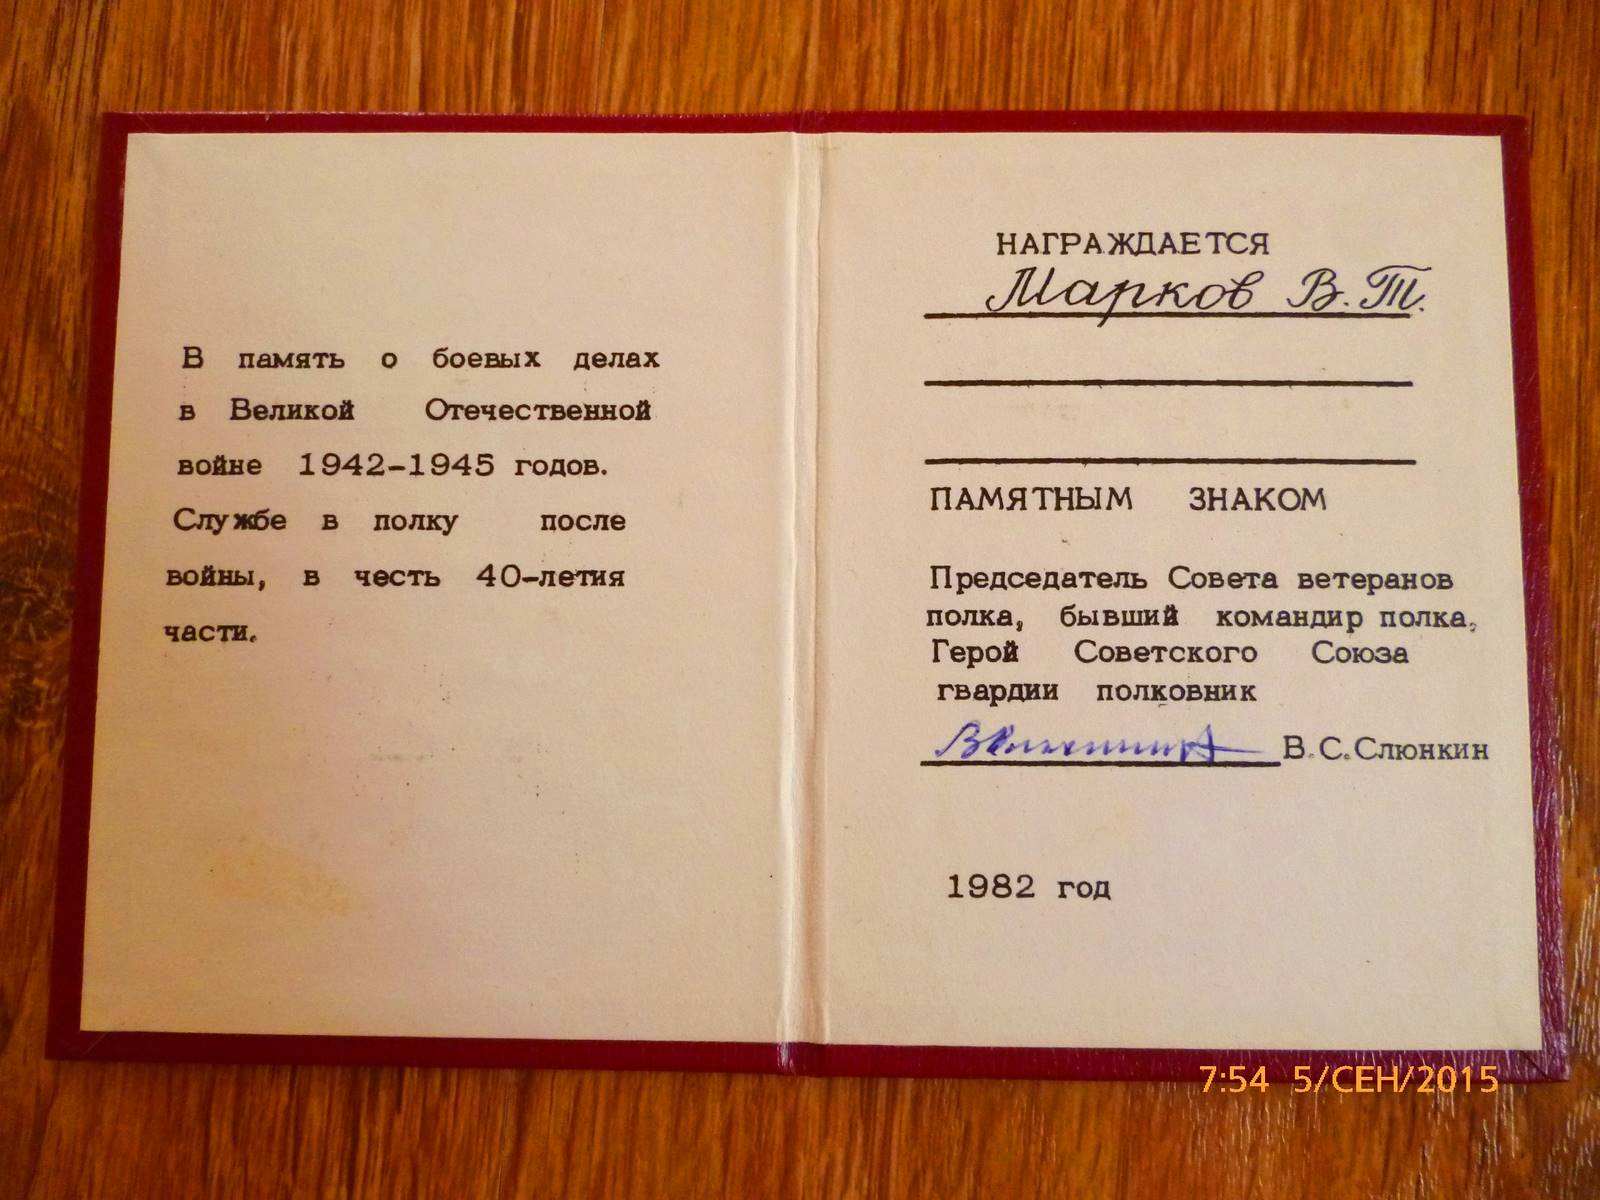 В память о боевых делах
в Великой Отечественной
войне 1942-1945 годов.
Службе в полку после
войны, в честь 40-летия
части.
НАГРАЖДАЕТСЯ
Марков В.Т.
ПАМЯТНЫМ ЗНАКОМ
Председатель Совета ветеранов
полка, бывший командир полка,
Герой Советского Союза
гвардии полковник
В.С.Слюнкин
1982 год
7:54 5/СЕН/2015